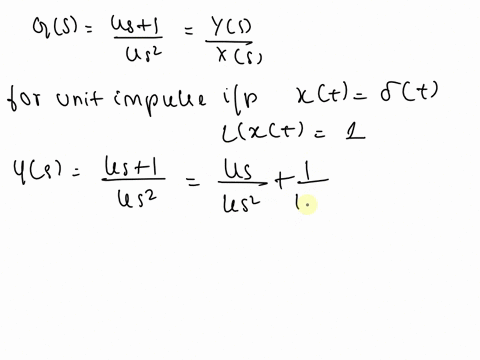 G(s) = 4s+1 / 4s² = Y(s) / X(s)
for unit impulse i/p x(t) = δ(t)
L(x(t) = 1
Y(s) = 4s+1 / 4s² = 4s / 4s² + 1 /